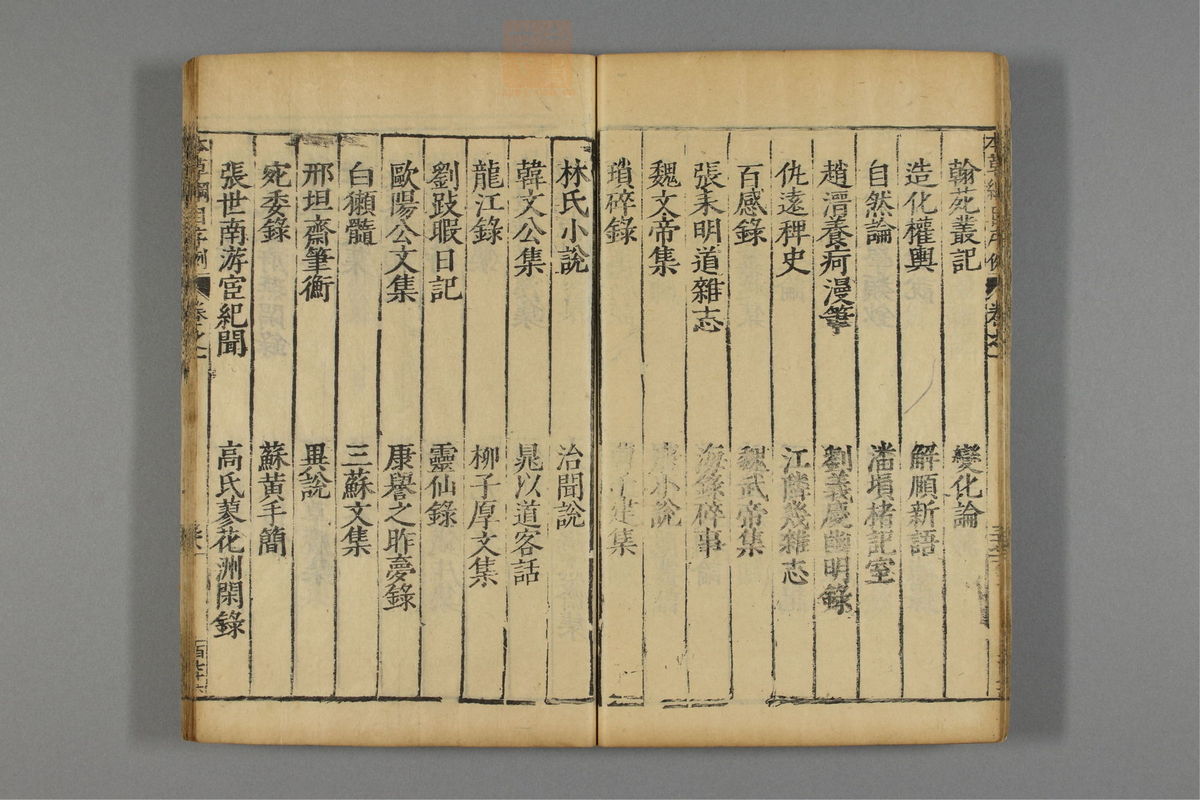 翰苑叢記 變化論
造化權輿 解頤新語
自然論 潘塤楮記室
趙溍養疴漫筆 劉義慶幽明錄
仇遠稗史 江隣幾雜志
百感錄 魏武帝集
張耒明道雜志 海錄碎事
魏文帝集 小說
瑣碎錄 建集
林氏小說 治聞說
韓文公集 晁以道客話
龍江錄 柳子厚文集
劉跂暇日記 靈仙錄
歐陽公文集 康譽之昨夢錄
白獺髓 三蘇文集
邢坦齋筆衡 異說
宛委錄 蘇黃手簡
張世南游宦紀聞 高氏蓼花洲閑錄
本草綱目序例 卷之一